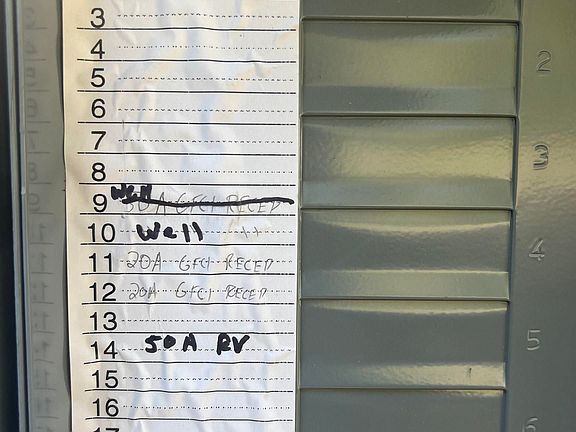 3
4
5
6
7
8
9 Well 30A GFCI RECEP
10 Well
11 20A GFCI RECEP
12 20A GFCI RECEP
13
14 50A RV
15
16
17
2
3
4
5
6